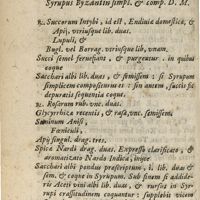 Syrupus Byzantin simpl. & comp. D. M.
℞. Succorum Intybi, id est, Endiuiæ domesticæ, &
Apij, viriusque lib. duas.
Lupuli, &
Bugl. vel Borrag. vtriusque lib. vnam.
Succi semel ferueant, & purgentur. in quibus
coque
Sacchari albi lib. duas, & semissem: si Syrupum
simplicem compositurus es: sin autem, succis sic
depuratis sequentia coque.
℞. Rosarum rub. vnc. duas.
Glycyrrhizæ recentis, & rasæ, vnc. semissem,
Seminum Anisi,
Fœniculi,
Apij singul. drag. tres.
Spicæ Nardi drag. duas. Expresso clarificato, &
aromatizato Nardo Indica, inijce
Sacchari albi pondus præscriptum, i. lib. duas &
sem. & coque in Syrupum. Sub finem si addide-
ris Aceti vini albi lib. duas, & rursus in Syru-
pi crassitudinem coquantur: supplebis vicem